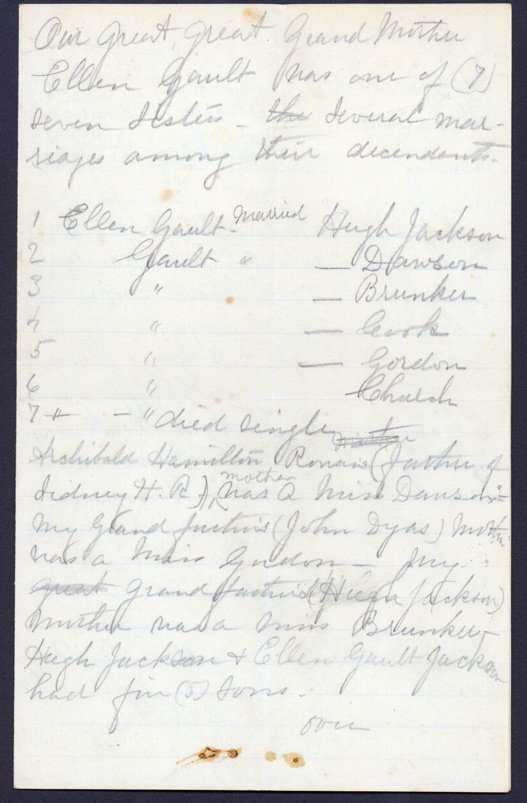 Our Great, Great Grand Mother
Ellen Gault was one of (7)
seven sisters - the several mar-
riages among their decendents.
1 Ellen Gault - Married Hugh Jackson
2 Gault " — Dawson
3 " — Brunker
4 " — Cook
5 " — Gordon
6 " Church
7 + - " died single
Archibald Hamilton Ronans (father of
Sidney H. R.), mother was a Miss Dawson -
My Grand father's (John Dyas) Mother
was a Miss Gordon - My
great Grand father's (Hugh Jackson)
Mother was a Miss Brunker -
Hugh Jackson & Ellen Gault Jackson
had five (5) sons -
over